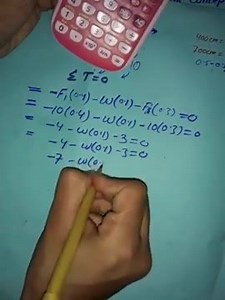 concep
400cm=
700cm=
10
0.5-0.3
Στ=0
= -F₁(0.4)-W(0.1)-F₂(0.3)=0
= -10(0.4)-W(0.1)-10(0.3)=0
= -4-W(0.1)-3=0
-4-W(0.1)-3=0
-7-W(0.